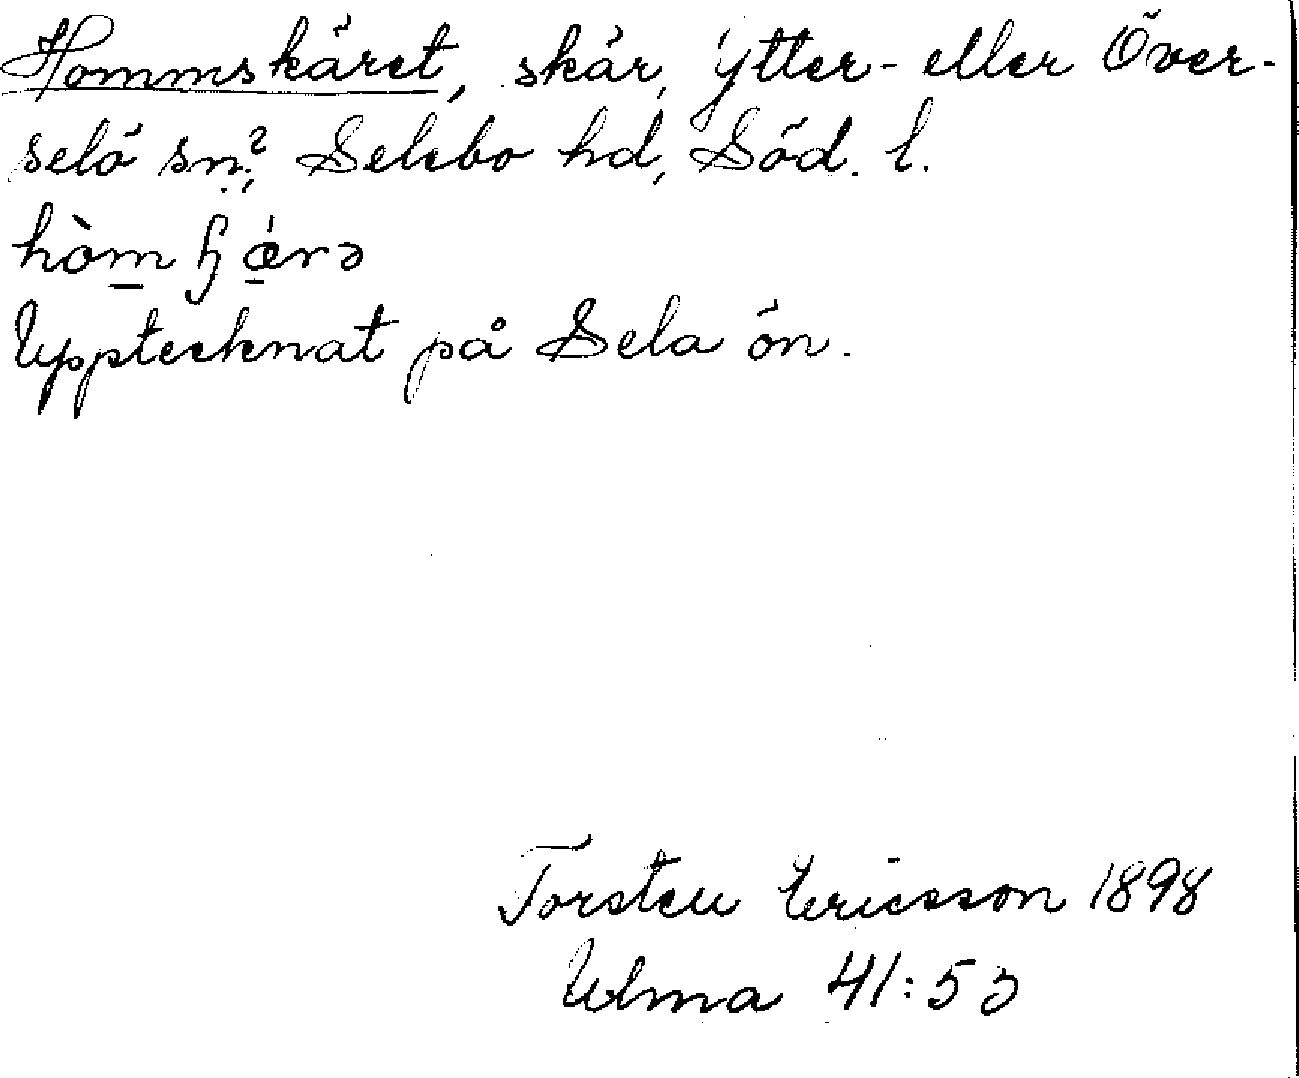 Hommskäret, skär, Ytter- eller Över-
selö sn?, Selebo hd, Söd. l.
hòm ɧǽrə
Upptecknat på Sela ön.
Torsten Ericsson 1898
Ulma 41:53